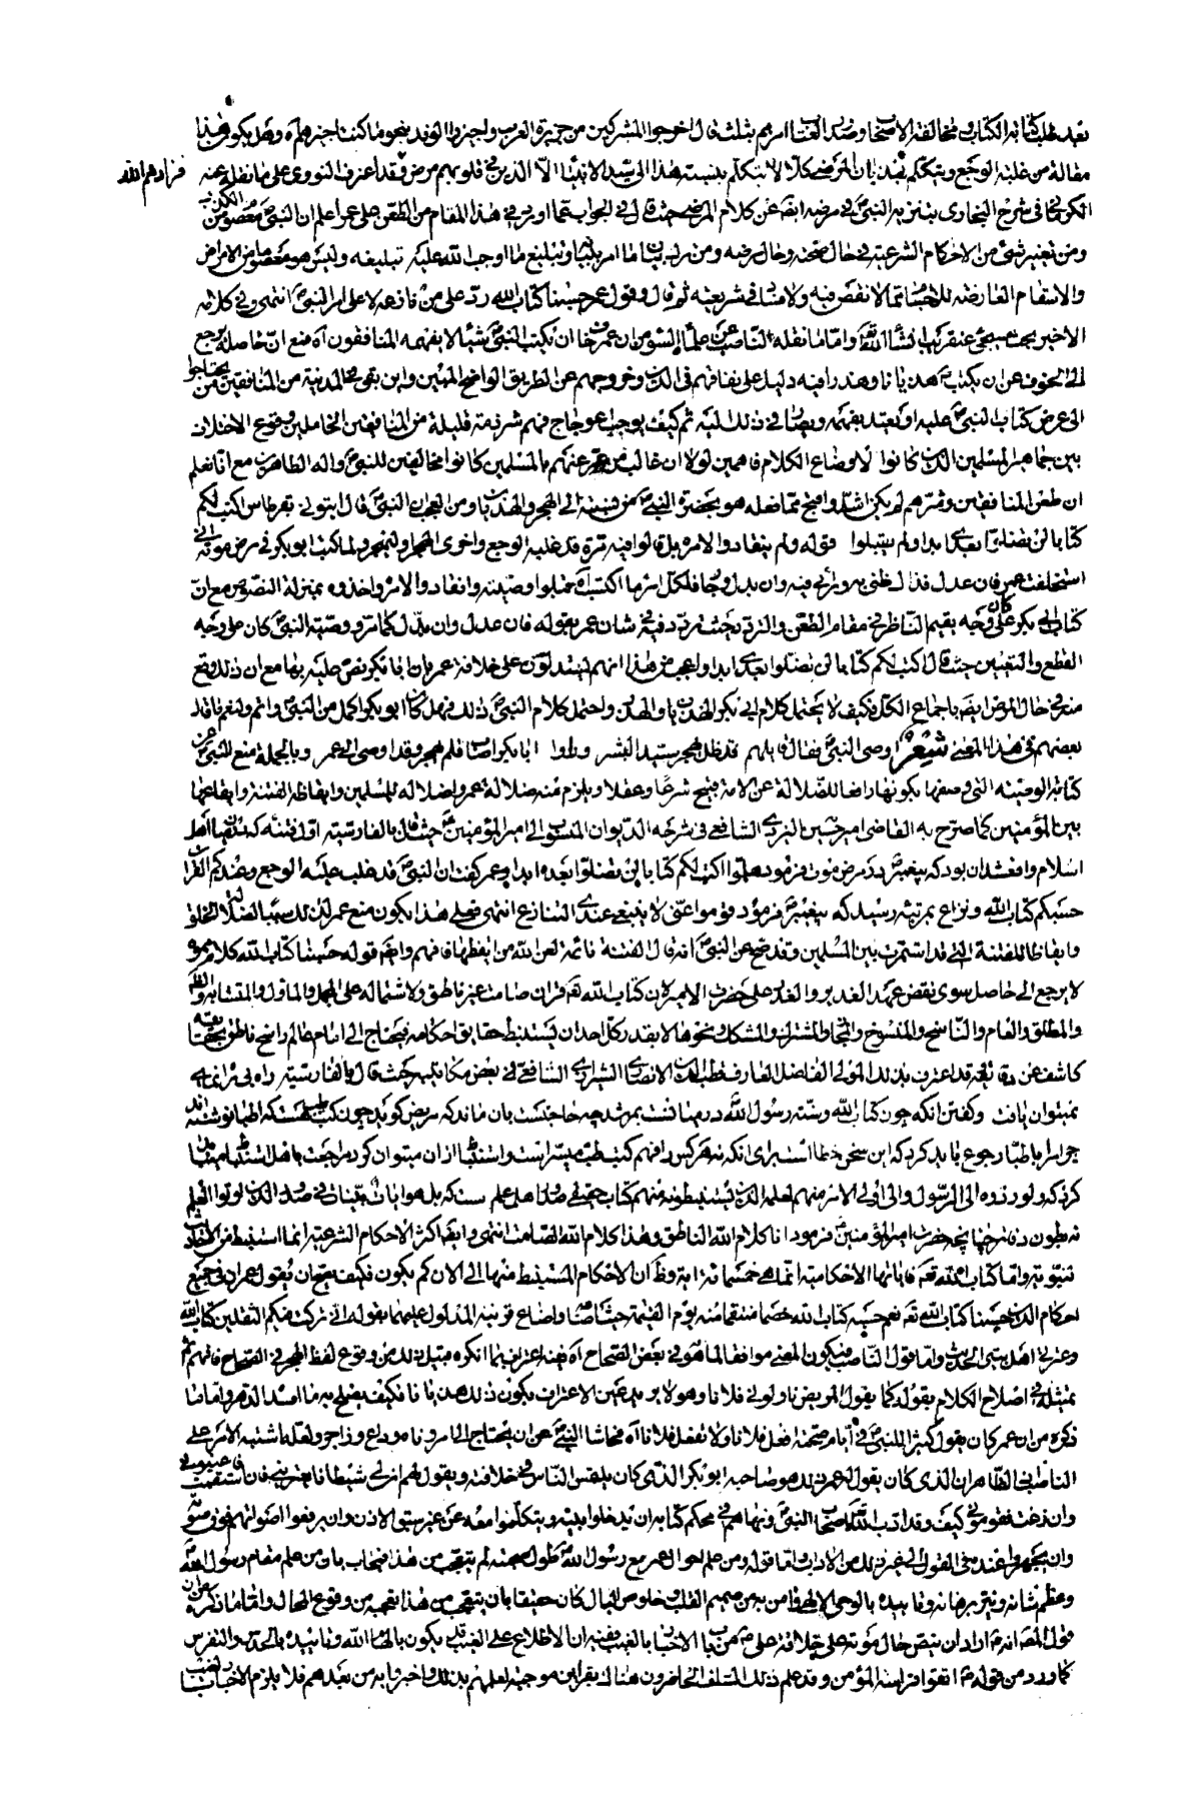 بعد طلب كتابة الكتاب و مخالفة الاصحاب و صدر الغيب امرهم بثلث قال اخرجوا المشركين من جزيرة العرب واجيزوا الوفد بنحو ما كنت اجيزهم آه وهل يكون هذا
مقالة من غلبه الوجع ويتكلم بهذيان المرضى كلا لا يتكلم بنسبته هذا الى سيد الانبياء الا الذين في قلوبهم مرض فقد اعترف النووي على ما نقله عنه
فزادهم الله
الكرماني في شرح البخاري بتنزيه النبي في مرضه ايضا عن كلام المرضى حيث قال في الجواب عما اورد في هذا المقام من الطعن على عمر اعلم ان النبي معصوم من الكذب
ومن تغيير شيء من الاحكام الشرعية في حال صحته وحال مرضه ومن ترك بيان ما امر ببيانه وتبليغ ما اوجب الله عليه تبليغه وليس هو معصوما من الامراض
والاسقام العارضة للاجسام مما لا نقص فيه ولا فساد في شريعته ثم قال وقول عمر حسبنا كتاب الله رد على من نازعه لا على امر النبي انتهى وفي كلامه
الاخير بحث سيجيء عنقريب انشاء الله تعالى واما ما نقله الناصب عن علماء السوء من ان عمر خاف ان يكتب النبي شيئا لا يفهمه المنافقون آه منع ان حاصله يرجع
الى الخوف عن ان يكتب هذيانا وهذرا فيه دليل على نفاقهم في الدين وخروجهم عن الطريق الواضح المبين واين بقي بالمدينة من المنافقين من يحتاجوا
الى عرض كتاب النبي عليه او يعتد بفهمه ويصار في ذلك اليه ثم كيف يوجب اعوجاج فهم شرذمة قليلة من المنافقين الخاملين وقوع الاختلاف
بين جماهير المسلمين الذين كانوا لاوضاع الكلام فاهمين لولا ان غالب من عبر عنهم بالمسلمين كانوا مخالفين للنبي وآله الطاهرين مع انا نعلم
ان طعن المنافقين وشرهم لم يكن اشد واضح مما فعله هو بحضرة النبي من نسبته الى الهجر والهذيان ومن العجب ان النبي قال ايتوني بقرطاس اكتب لكم
كتابا لن تضلوا بعدي ابدا ولم يقبلوا قوله ولم ينقادوا لامره بل قالوا فيه تارة قد غلبه الوجع واخرى اهجر ولما كتب ابو بكر في مرض موته اني
استخلفت عمر فان عدل فذاك ظني به ورأيي فيه وان بدل وجار فلكل امرئ ما اكتسب آه قبلوا وصيته وانقادوا لامره واخذوه بمنزلة النصوص مع ان
كتاب ابي بكر كان على وجه يقيم الناظر في مقام الطعن والتردد حيث تردد فيه في شان عمر بقوله فان عدل وان بدل كما تر ووصية النبي كان على وجه
القطع واليقين حيث قال اكتب لكم كتابا لن تضلوا بعدي ابدا واعجب من هذا انهم استدلون على خلافة عمر بان ابا بكر نص عليه بها مع ان ذلك وقع
منه في حال المرض ايضا باجماع الكل فكيف لا يحتمل كلام ابي بكر الهذيان والهذر واحتمل كلام النبي ذلك فهل كان ابو بكر اكمل من النبي واتم ولنعم ما قال
بعضهم في هذا المعنى شعر اوصى النبي فقال قائلهم قد ظل يهجر سيد البشر وراوا ابا بكر اصاب فلم يهجر وقد اوصى الى عمر وبالجملة منع النبي عن
كتابة الوصية التي وصفها بكونها رافعا للضلالة عن الامة قبيح شرعا وعقلا ويلزم منه ضلالة عمر واضلاله للمسلمين وايقاظه الفتنة وايقاعها
بين المؤمنين كما صرح به القاضي امير حسين اليزدي الشافعي في شرحه الديوان المنسوب الى امير المؤمنين حيث قال بالفارسية اول فتنه كه ميان اهل
اسلام واقع شد آن بود كه پيغمبر در مرض موت فرمود هلموا اكتب لكم كتابا لن تضلوا بعده ابدا وعمر گفت ان النبي قد غلب عليه الوجع وعندكم القرآن
حسبكم كتاب الله ونزاع بمرتبه رسيد كه پيغمبر فرمود قوموا عني لا ينبغي عندي التنازع انتهى فعلى هذا يكون منع عمر لذلك سببا لضلال الخلق
وايقاظا للفتنة التي قد استمرت بين المسلمين وقد صح عن النبي انه قال الفتنة نائمة لعن الله من ايقظها فافهم وايضا قوله حسبنا كتاب الله كلام مموه
لا يرجع الى حاصل سوى نقض عهد الغدير والغدر على حضرت الامير لان كتاب الله تعالى قرآن صامت غير ناطق ولاشتماله على المجمل والماول والمتشابه والظاهر
والمطلق والعام والناسخ والمنسوخ والمجاز والمشترك والمشكل ونحوها لا يقدر كل احد ان يستنبط حقايق احكامه فيحتاج الى امام عالم واضح ناطق بحقايقه
كاشف عن دقائقه وقد اعترف بذلك المولى الفاضل العارف قطب الدين الانصاري الشيرازي الشافعي في بعض مكاتيبه حيث قال بالفارسية راه بي راهنما
نميتوان يافت وگفتن آنكه چون كتاب الله وسنة رسول الله در ميانست بمرشد چه حاجتست بآن ماند كه مريض گويد چون كتب طب هست كه اطبا نوشته اند
چرا باطبا رجوع بايد كرد كه اين سخن خطا است براى آنكه نه هر كس را فهم كتب طب ميسر است واستنباط از آن ميتوان كرد مراجعت باهل استنباط ميبايد
كرد كه ولو ردوه الى الرسول والى اولي الامر منهم لعلمه الذين يستنبطونه منهم كتاب حقيقى صدور اهل علم ست كه بل هو آيات بينات في صدور الذين اوتوا العلم
نه بطون دفاتر چنانچه حضرت امير المؤمنين فرمود انا كلام الله الناطق وهذا كلام الله الصامت انتهى وايضا اكثر الاحكام الشرعية انما استنبط من احاديث
نبوية واما كتاب الله تعالى فآياتها الاحكامية انما هي خمسمائة آية وظاهر ان الاحكام المستنبط منها الى الآن كم يكون فكيف يصح ان يقول عمر في جميع
احكام الدين حسبنا كتاب الله تعالى نعم حسبه كتاب الله خصما منتقما منه يوم القيمة حيث اضاعه واضاع قرينه المدلول عليهما بقوله اني تركت فيكم الثقلين كتاب الله
وعترتي اهل بيتي الحديث واما قول الناصب فيكون المعنى موافقا لما هو في بعض الصحاح آه ففيه اعتراف بما انكره قبيل ذلك من وقوع لفظ الهجر في الصحاح فافهم ثم
تمثيله في اصلاح الكلام بقوله كما يقول المريض ناولوني فلانا وهو لا يريده عين الاعتراف بكون ذلك هذيانا فكيف يصلح به ما افسد الدهر واما ما
ذكره من ان عمر كان يقول كثيرا للنبي في ايام صحته افعل فلانا ولا تفعل فلانا آه فحاشا النبي عن ان يحتاج الى امر وناه وداع وزاجر ولعله اشتبه الامر على
الناصب في الظاهر ان الذي كان يقول له عمر ذلك هو صاحبه ابو بكر الذي كان يلتمس الناس في خلافته ويقول لهم ان لي شيطانا يعتريني فان استقمت فاعينوني
وان زغت فقوموني كيف وقد ادب الله تعالى اصحاب النبي ونهاهم في محكم كتابه ان يدخلوا بيته ويتكلموا معه عن غير سبق الاذن وان يرفعوا اصواتهم فوق صوته
وان يجهروا عنده في القول الى غير ذلك من الآداب واما قوله ومن علم احوال عمر مع رسول الله وطول صحبته لم يتعجب من هذا فيجاب بان من علم مقام رسول الله
وعظم شانه ونير برهانه وتاييده بالوحي الالهي وآمن به من صميم القلب وخلوص البال كان حقيقا بان يتعجب من هذا فضلا من وقوع المحال واما ما ذكره من ان
قول المصنف انه اراد ان ينص حال موته على خلافة علي من باب الاخبار بالغيب ففيه ان الاطلاع على الغيب قد يكون بالهام الله وتاييده بالحدس والتفرس
كما ورد من قوله اتقوا فراسة المؤمن وقد علم ذلك السلف الحاضرون هناك بقراين موجبة لعلمهم بذلك واخبروا به من بعدهم فلا يلزم الاخبار بالغيب